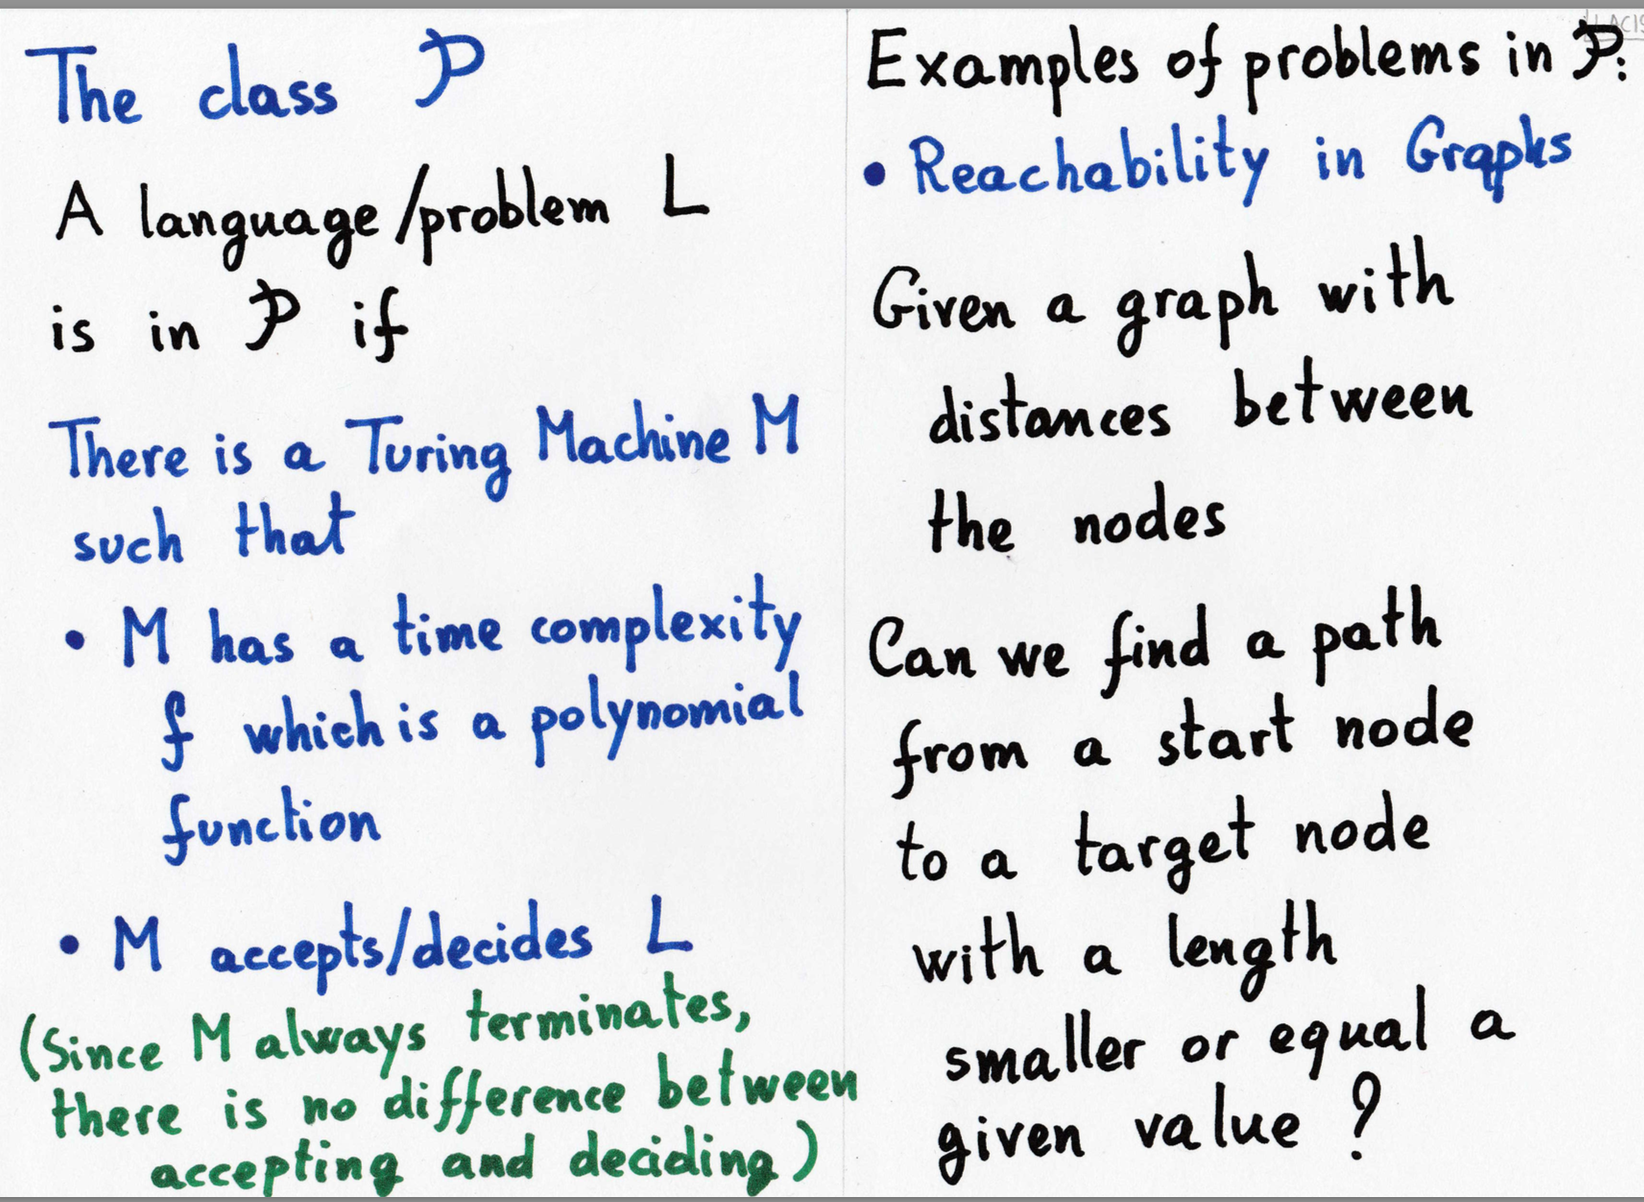 The class P
A language/problem L
is in P if
There is a Turing Machine M
such that
• M has a time complexity
f which is a polynomial
function
• M accepts/decides L
(Since M always terminates,
there is no difference between
accepting and deciding)
Examples of problems in P:
• Reachability in Graphs
Given a graph with
distances between
the nodes
Can we find a path
from a start node
to a target node
with a length
smaller or equal a
given value?